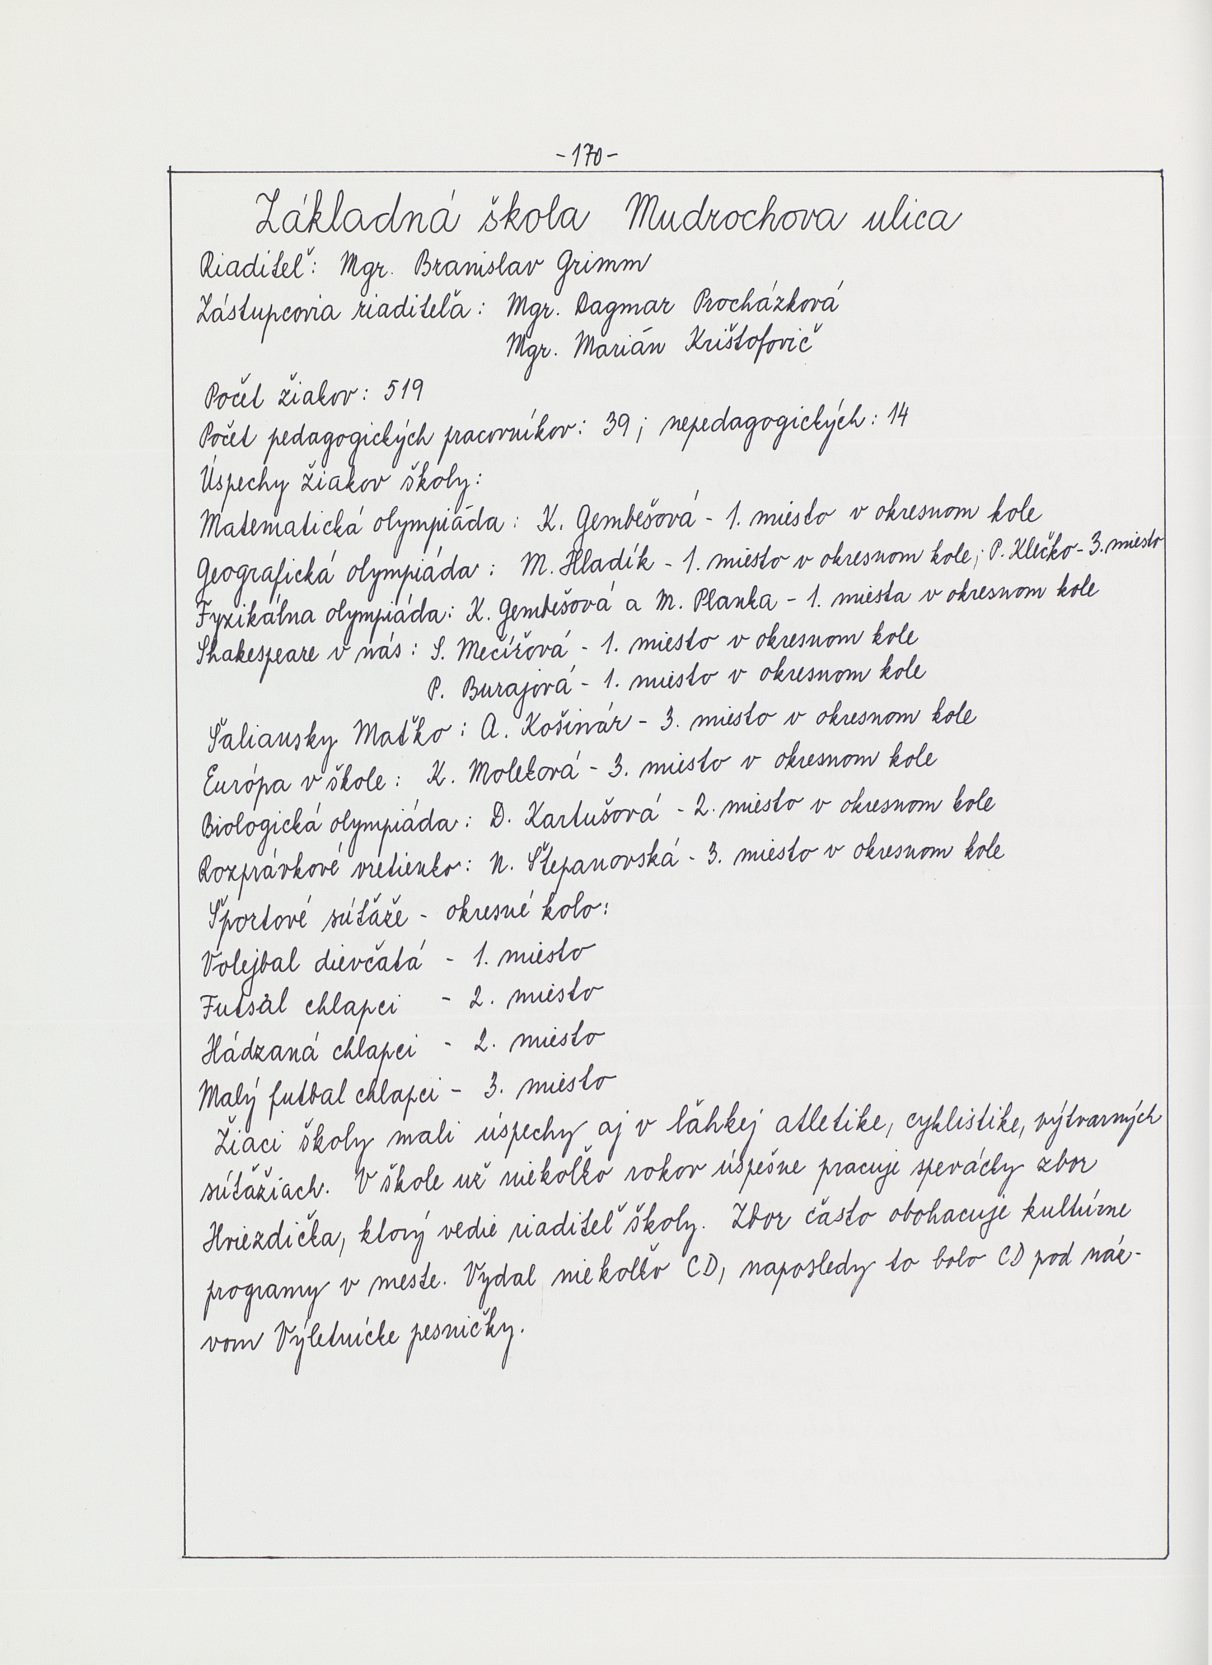 -170-
Základná škola Mudrochova ulica
Riaditeľ: Mgr. Branislav Grimm
Zástupcovia riaditeľa: Mgr. Dagmar Procházková
Mgr. Marián Krištofovič
Počet žiakov: 519
Počet pedagogických pracovníkov: 39; nepedagogických: 14
Úspechy žiakov školy:
Matematická olympiáda: K. Gembešová - 1. miesto v okresnom kole
Geografická olympiáda: M. Hladík - 1. miesto v okresnom kole; P. Klečko - 3. miesto
Fyzikálna olympiáda: K. Gembešová a M. Planka - 1. miesta v okresnom kole
Shakespeare v nás: S. Mečířová - 1. miesto v okresnom kole
P. Burajová - 1. miesto v okresnom kole
Šaliansky Maťko: A. Košinár - 3. miesto v okresnom kole
Európa v škole: K. Moleková - 3. miesto v okresnom kole
Biologická olympiáda: D. Kartušová - 2. miesto v okresnom kole
Rozprávkové vretienko: N. Štepanovská - 3. miesto v okresnom kole
Športové súťaže - okresné kolo:
Volejbal dievčatá - 1. miesto
Futsal chlapci - 2. miesto
Hádzaná chlapci - 2. miesto
Malý futbal chlapci - 3. miesto
Žiaci školy mali úspechy aj v ľahkej atletike, cyklistike, výtvarných
súťažiach. V škole už niekoľko rokov úspešne pracuje spevácky zbor
Hviezdička, ktorý vedie riaditeľ školy. Zbor často obohacuje kultúrne
programy v meste. Vydal niekoľko CD, naposledy to bolo CD pod náz-
vom Výletnícke pesničky.